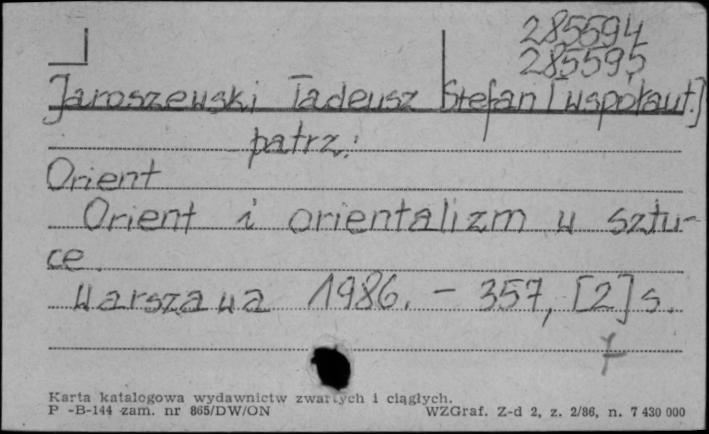 285594
285595
Jaroszewski Tadeusz Stefan [współaut.]
patrz:
Orient
Orient i orientalizm w sztu-
ce.
Warszawa 1986. - 357, [2] s.
Karta katalogowa wydawnictw zwartych i ciągłych.
P -B-144 zam. nr 865/DW/ON WZGraf. Z-d 2, z. 2/86, n. 7 430 000